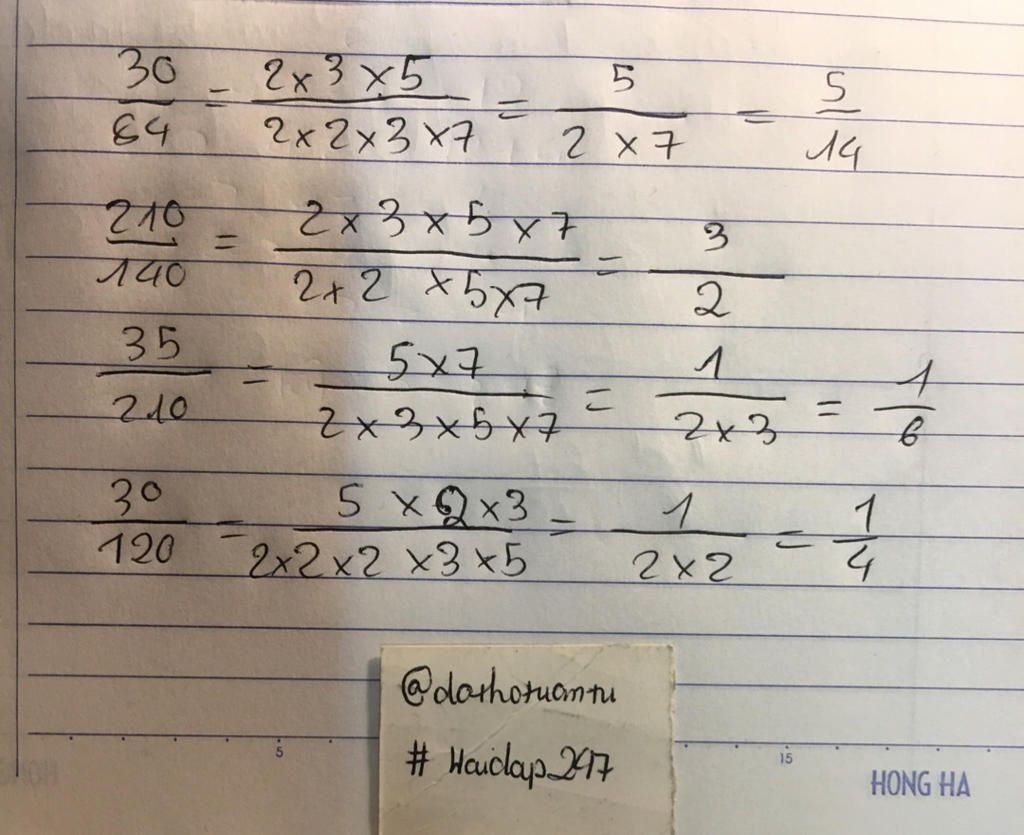 30/64 = 2×3×5/2×2×3×7 = 5/2×7 = 5/14
210/140 = 2×3×5×7/2×2×5×7 = 3/2
35/210 = 5×7/2×3×5×7 = 1/2×3 = 1/6
30/120 = 5×2×3/2×2×2×3×5 = 1/2×2 = 1/4
@dathotuantu
# Hoidap247
5 15
HONG HA